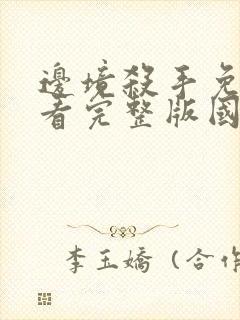 邊境殺手免
看完整版國
李玉嬌（合作